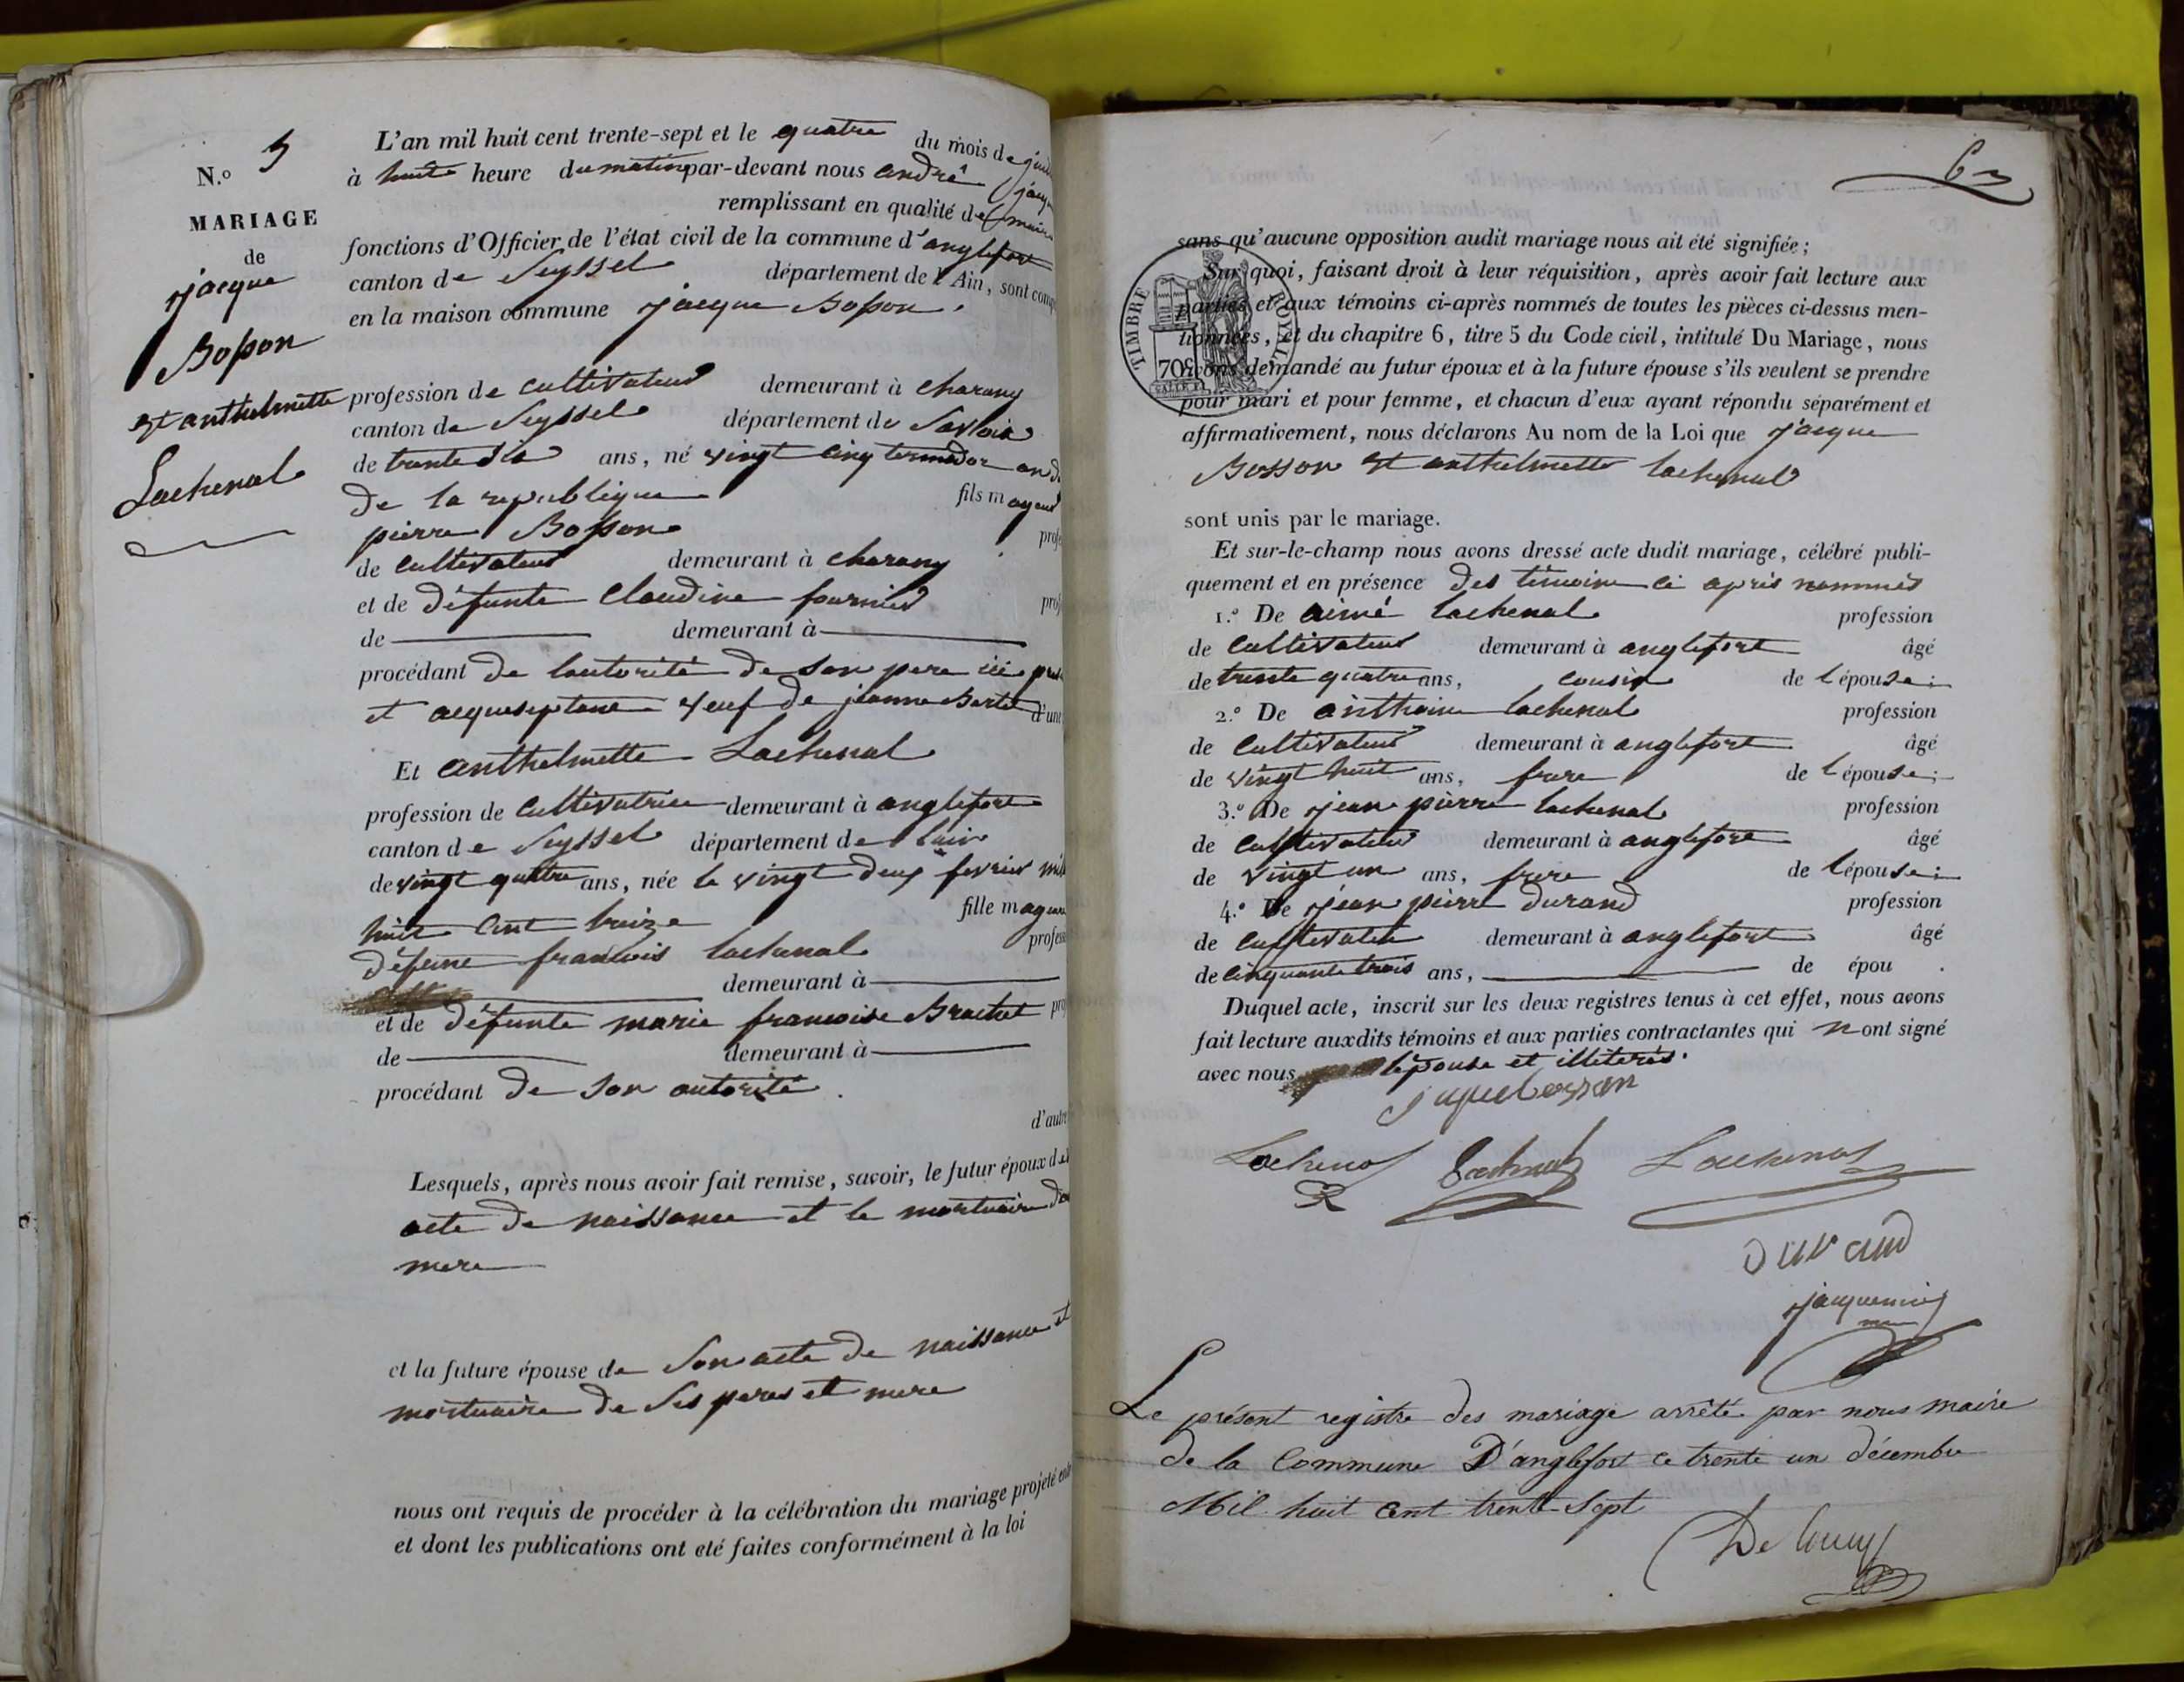 N.º 5
MARIAGE
de
jacque
Bosson
et anthelmette
Lachenal
L'an mil huit cent trente-sept et le quatre du mois de
à huite heure du matin par-devant nous andré
remplissant en qualité de maire
fonctions d'Officier de l'état civil de la commune d'anglefort
canton de Seyssel département de l'Ain, sont
en la maison commune jacque Bosson.
profession de cultivateur demeurant à charany
canton de Seyssel département de Savoie
de trente ans, né vingt cinq termador an
de la republique fils mageur
pierre Bosson
de cultivateur demeurant à charany
et de défunte Claudine fournier
de demeurant à
procédant de lautorité de son pere ici
et acqueseptant veuf de jeanne
Et anthelmette Lachenal
profession de cultivatrice demeurant à anglefort
canton de Seyssel département de lain
de vingt quatre ans, née le vingt deux fevrier mil
huit cent treize fille mageure
défunt francois lachenal
demeurant à
et de défunte marie francoise Brachet
de demeurant à
procédant de son autorité.
Lesquels, après nous avoir fait remise, savoir, le futur époux de
acte de naissance et le mortuaire de
mere
et la future épouse de Son acte de naissance et
mortuaire de Ses peres et mere
nous ont requis de procéder à la célébration du mariage projeté
et dont les publications ont été faites conformément à la loi
sans qu'aucune opposition audit mariage nous ait été signifiée;
Sur quoi, faisant droit à leur réquisition, après avoir fait lecture aux
parties et aux témoins ci-après nommés de toutes les pièces ci-dessus men-
tionnées, et du chapitre 6, titre 5 du Code civil, intitulé Du Mariage, nous
avons demandé au futur époux et à la future épouse s'ils veulent se prendre
pour mari et pour femme, et chacun d'eux ayant répondu séparément et
affirmativement, nous déclarons Au nom de la Loi que jacque
Bosson et anthelmette lachenal
TIMBRE ROYAL
70
sont unis par le mariage.
Et sur-le-champ nous avons dressé acte dudit mariage, célébré publi-
quement et en présence des témoins ci apris nommés
1.º De aimé lachenal profession
de cultivateur demeurant à anglefort âgé
de trente quatre ans, cousin de l'épouse;
2.º De anthoine lachenal profession
de cultivateur demeurant à anglefort âgé
de vingt huit ans, frere de l'épouse;
3.º De jean pierre lachenal profession
de cultivateur demeurant à anglefort âgé
de vingt un ans, frere de l'épouse;
4.º De jean pierre durand profession
de cultivateur demeurant à anglefort âgé
de cinquante trois ans, de épou
Duquel acte, inscrit sur les deux registres tenus à cet effet, nous avons
fait lecture auxdits témoins et aux parties contractantes qui nont signé
avec nous lépouse et illiterés.
Lachenal Lachenal Lachenal
durand
jacquemin
Le présent registre des mariage arrêté par nous maire
de la Commune D'anglefort ce trente un décembre
Mil huit cent trente Sept